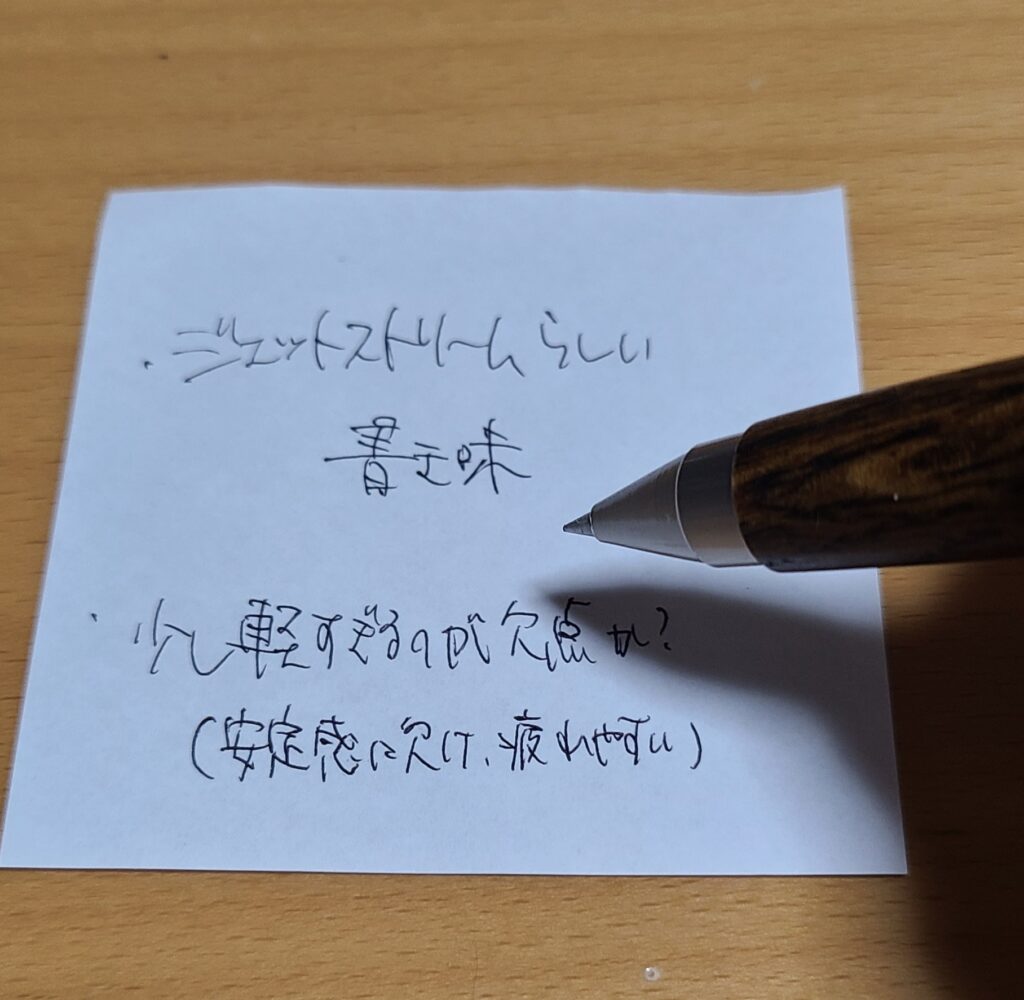 ・ジェットストリームらしい
書き味
・少し軽すぎるのが欠点か?
(安定感に欠け、疲れやすい)